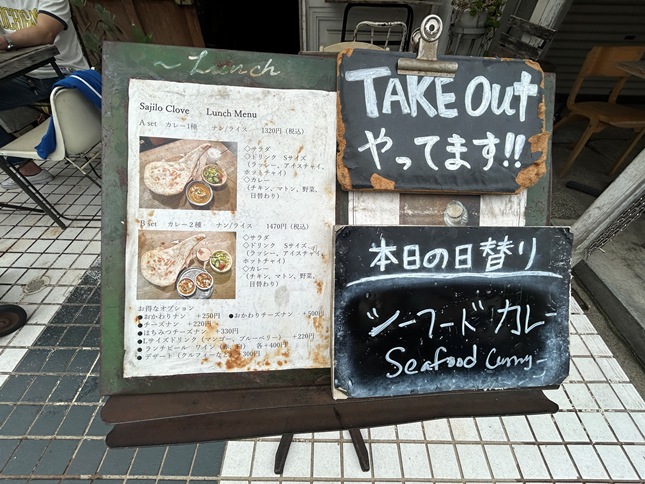 ~ Lunch
Sajilo Clove Lunch Menu
A set カレー1種 ナン/ライス 1320円(税込)
◇サラダ
◇ドリンク Sサイズ
(ラッシー、アイスチャイ、
ホットチャイ)
◇カレー
(チキン、マトン、野菜、
日替わり)
B set カレー2種 ナン/ライス 1470円(税込)
◇サラダ
◇ドリンク Sサイズ
(ラッシー、アイスチャイ、
ホットチャイ)
◇カレー
(チキン、マトン、野菜、
日替わり)
お得なオプション
●おかわりナン +250円 ●おかわりチーズナン +500円
●チーズナン +220円
●はちみつチーズナン +330円
●Lサイズドリンク(マンゴー、ブルーベリー) +220円
●ランチビール ワイン 各+400円
●デザート(クルフィーなど) 300円
TAKE Out
やってます!!
本日の日替り
シーフードカレー
Seafood Curry